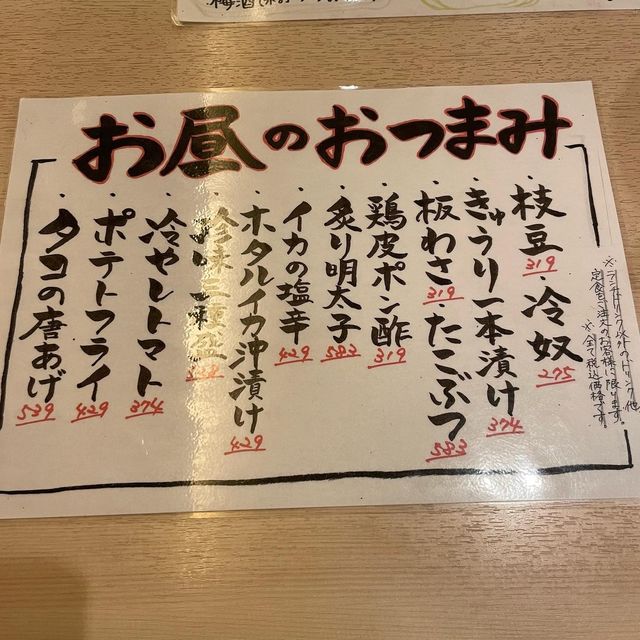 お昼のおつまみ
・枝豆 319 ・冷奴 275
・きゅうり一本漬け 374
・板わさ 319 ・たこぶつ 583
・鶏皮ポン酢 319
・炙り明太子 583
・イカの塩辛 429
・ホタルイカ沖漬け 429
・珍味三種盛
・冷やしトマト 374
・ポテトフライ 429
・タコの唐あげ 539
※ランチドリンク以外のドリンク他
定食をご注文のお客様に限ります。
※全て税込価格です。